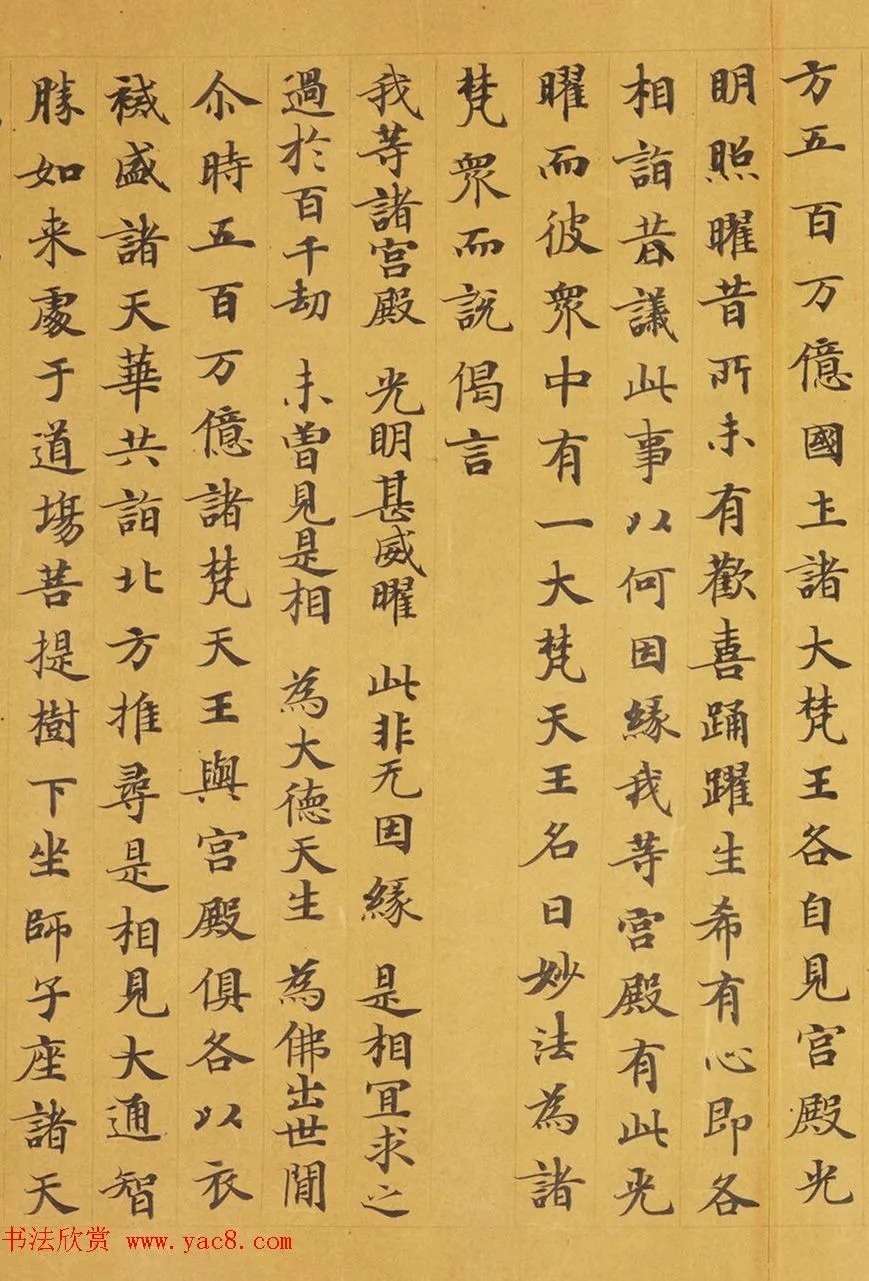 方五百万億國土諸大梵王各自見宮殿光
明照曜昔所未有歡喜踊躍生希有心即各
相詣共議此事以何因緣我等宮殿有此光
曜而彼衆中有一大梵天王名曰妙法為諸
梵衆而說偈言
我等諸宮殿 光明甚威曜 此非无因緣 是相冝求之
過於百千劫 未曾見是相 為大德天生 為佛出世間
尒時五百万億諸梵天王與宮殿俱各以衣
祴盛諸天華共詣北方推尋是相見大通智
勝如来處于道場菩提樹下坐師子座諸天
书法欣赏 www.yac8.com